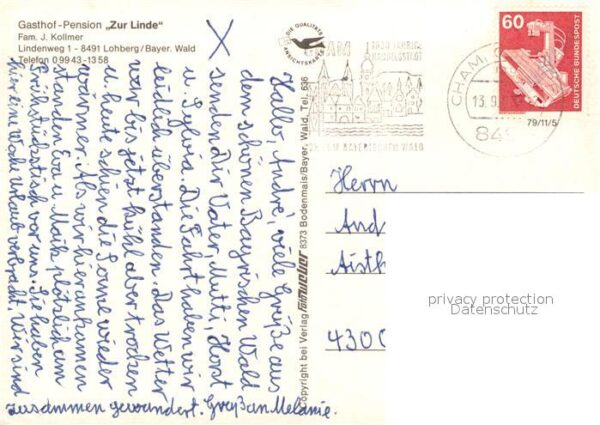 Gasthof-Pension „Zur Linde"
Fam. J. Kollmer
Lindenweg 1 - 8491 Lohberg/Bayer. Wald
Telefon 09943-1358
Hallo, André, viele Grüße aus
dem schönen Bayrischen Wald
senden Dir Vater, Mutti, Horst
u. Sylvia. Die Fahrt haben wir
leidlich überstanden. Das Wetter
war bis jetzt kühl aber trocken
u. heute schien die Sonne wieder
wärmer. Als wir hier ankamen
standen Eva u. Maik plötzlich am
Frühstückstisch vor uns. Sie haben
hier eine Woche Urlaub verbracht. Wir sind
zusammen gewandert. Gruß an Melanie.
DIE QUALITÄTS
ANSICHTSKARTE
Copyright by Verlag foto weber 8373 Bodenmais/Bayer. Wald, Tel. 636
CHAM
VOR DEM BAYERISCHEN WALD
CHAM,
13.9.
849
60
DEUTSCHE BUNDESPOST
79/11/5
Herrn
And
Aistl
4300
privacy protection
Datenschutz